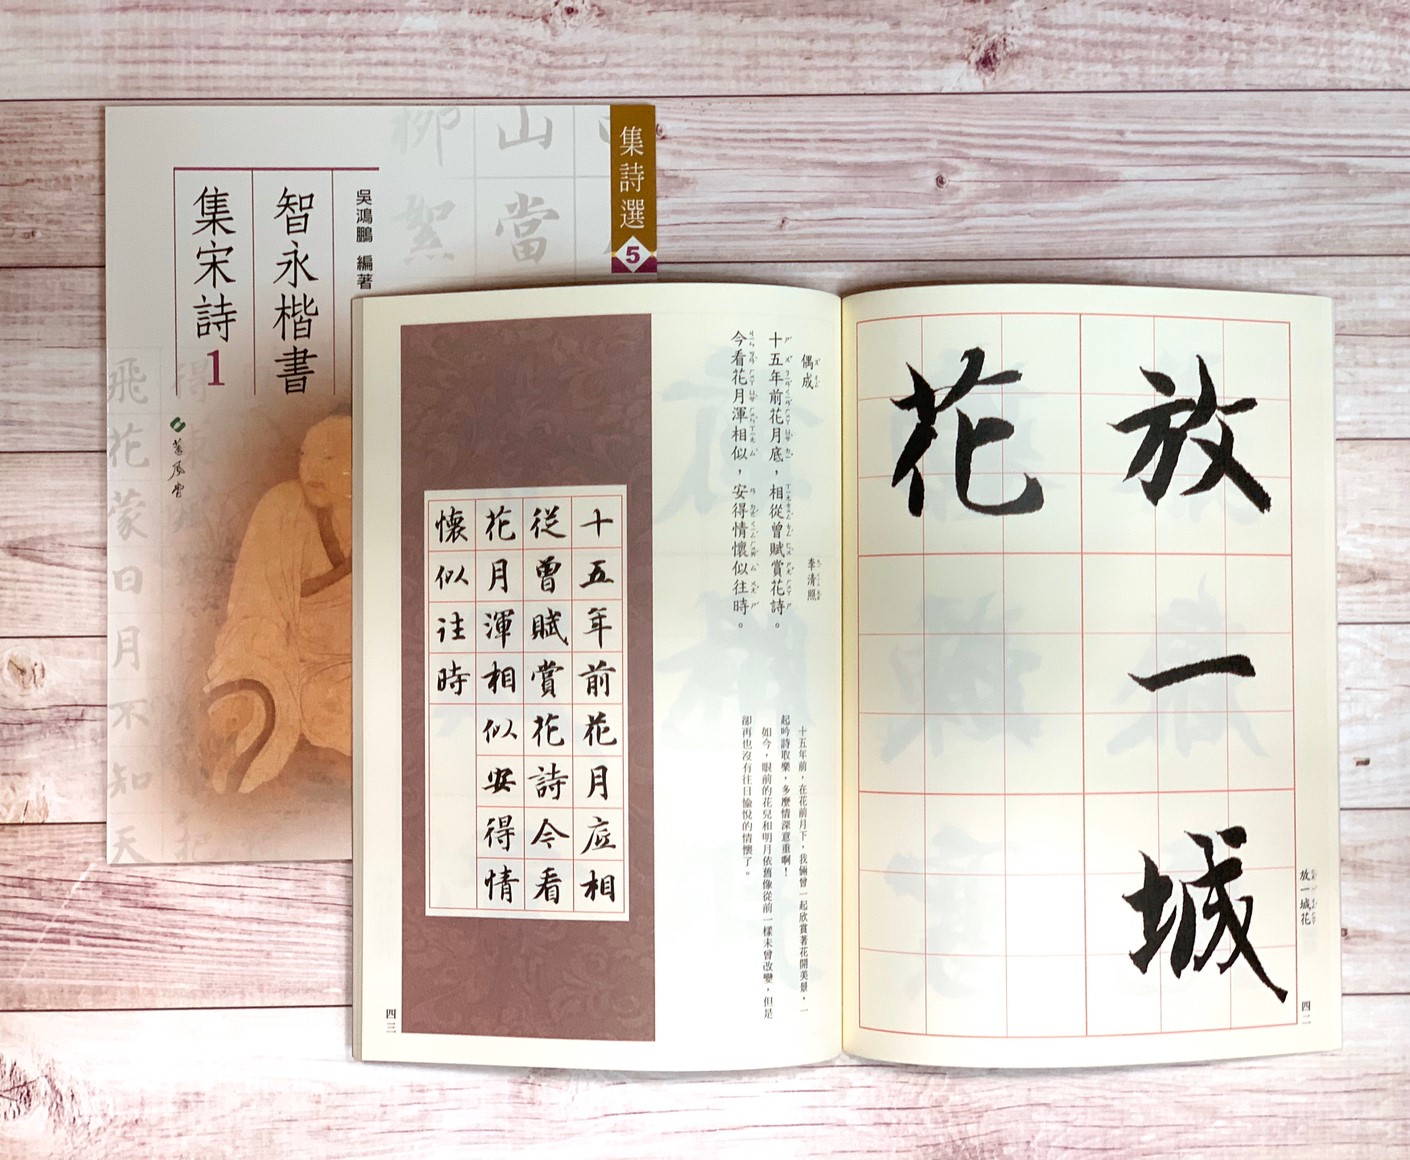 集詩選
5
吳鴻鵬 編著
智永楷書
集宋詩1
蕙風堂
山
當
柳
絮
飛花蒙日月不知天
放一城
花
放一城花
四二
偶成
李清照
十五年前花月底，相從曾賦賞花詩。
今看花月渾相似，安得情懷似往時。
十五年前，在花前月下，我倆曾一起欣賞著花開美景，一
起吟詩取樂，多麼情深意重啊！
如今，眼前的花兒和明月依舊像從前一樣未曾改變，但是
卻再也沒有往日愉悅的情懷了。
十五年前花月底相
從曾賦賞花詩今看
花月渾相似安得情
懷似往時
四三